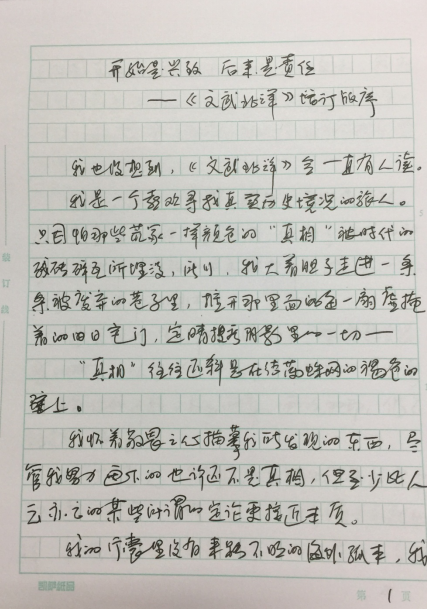 开始是兴致 后来是责任
——《文武北洋》增订版序
我也没想到,《文武北洋》会一直有人读。
我是一个喜欢寻找真实历史情况的旅人。
只因怕那些苔藓一样颜色的“真相”被时代的
碎砖碎瓦所埋没,所以,我大着胆子走进一条
条被废弃的巷子里,推开那里面的每一扇虚掩
着的旧日宅门,定睛搜索阴影里的一切——
“真相”往往还斜悬在结满蛛网的褐色的
壁上。
我怀着敬畏之心描摹我所发现的东西,尽
管我努力画下的也许还不是真相,但至少比人
云亦云的某些所谓的定论更接近本质。
我的行囊里没有来路不明的海外孤本,我
装订线
第 1 页